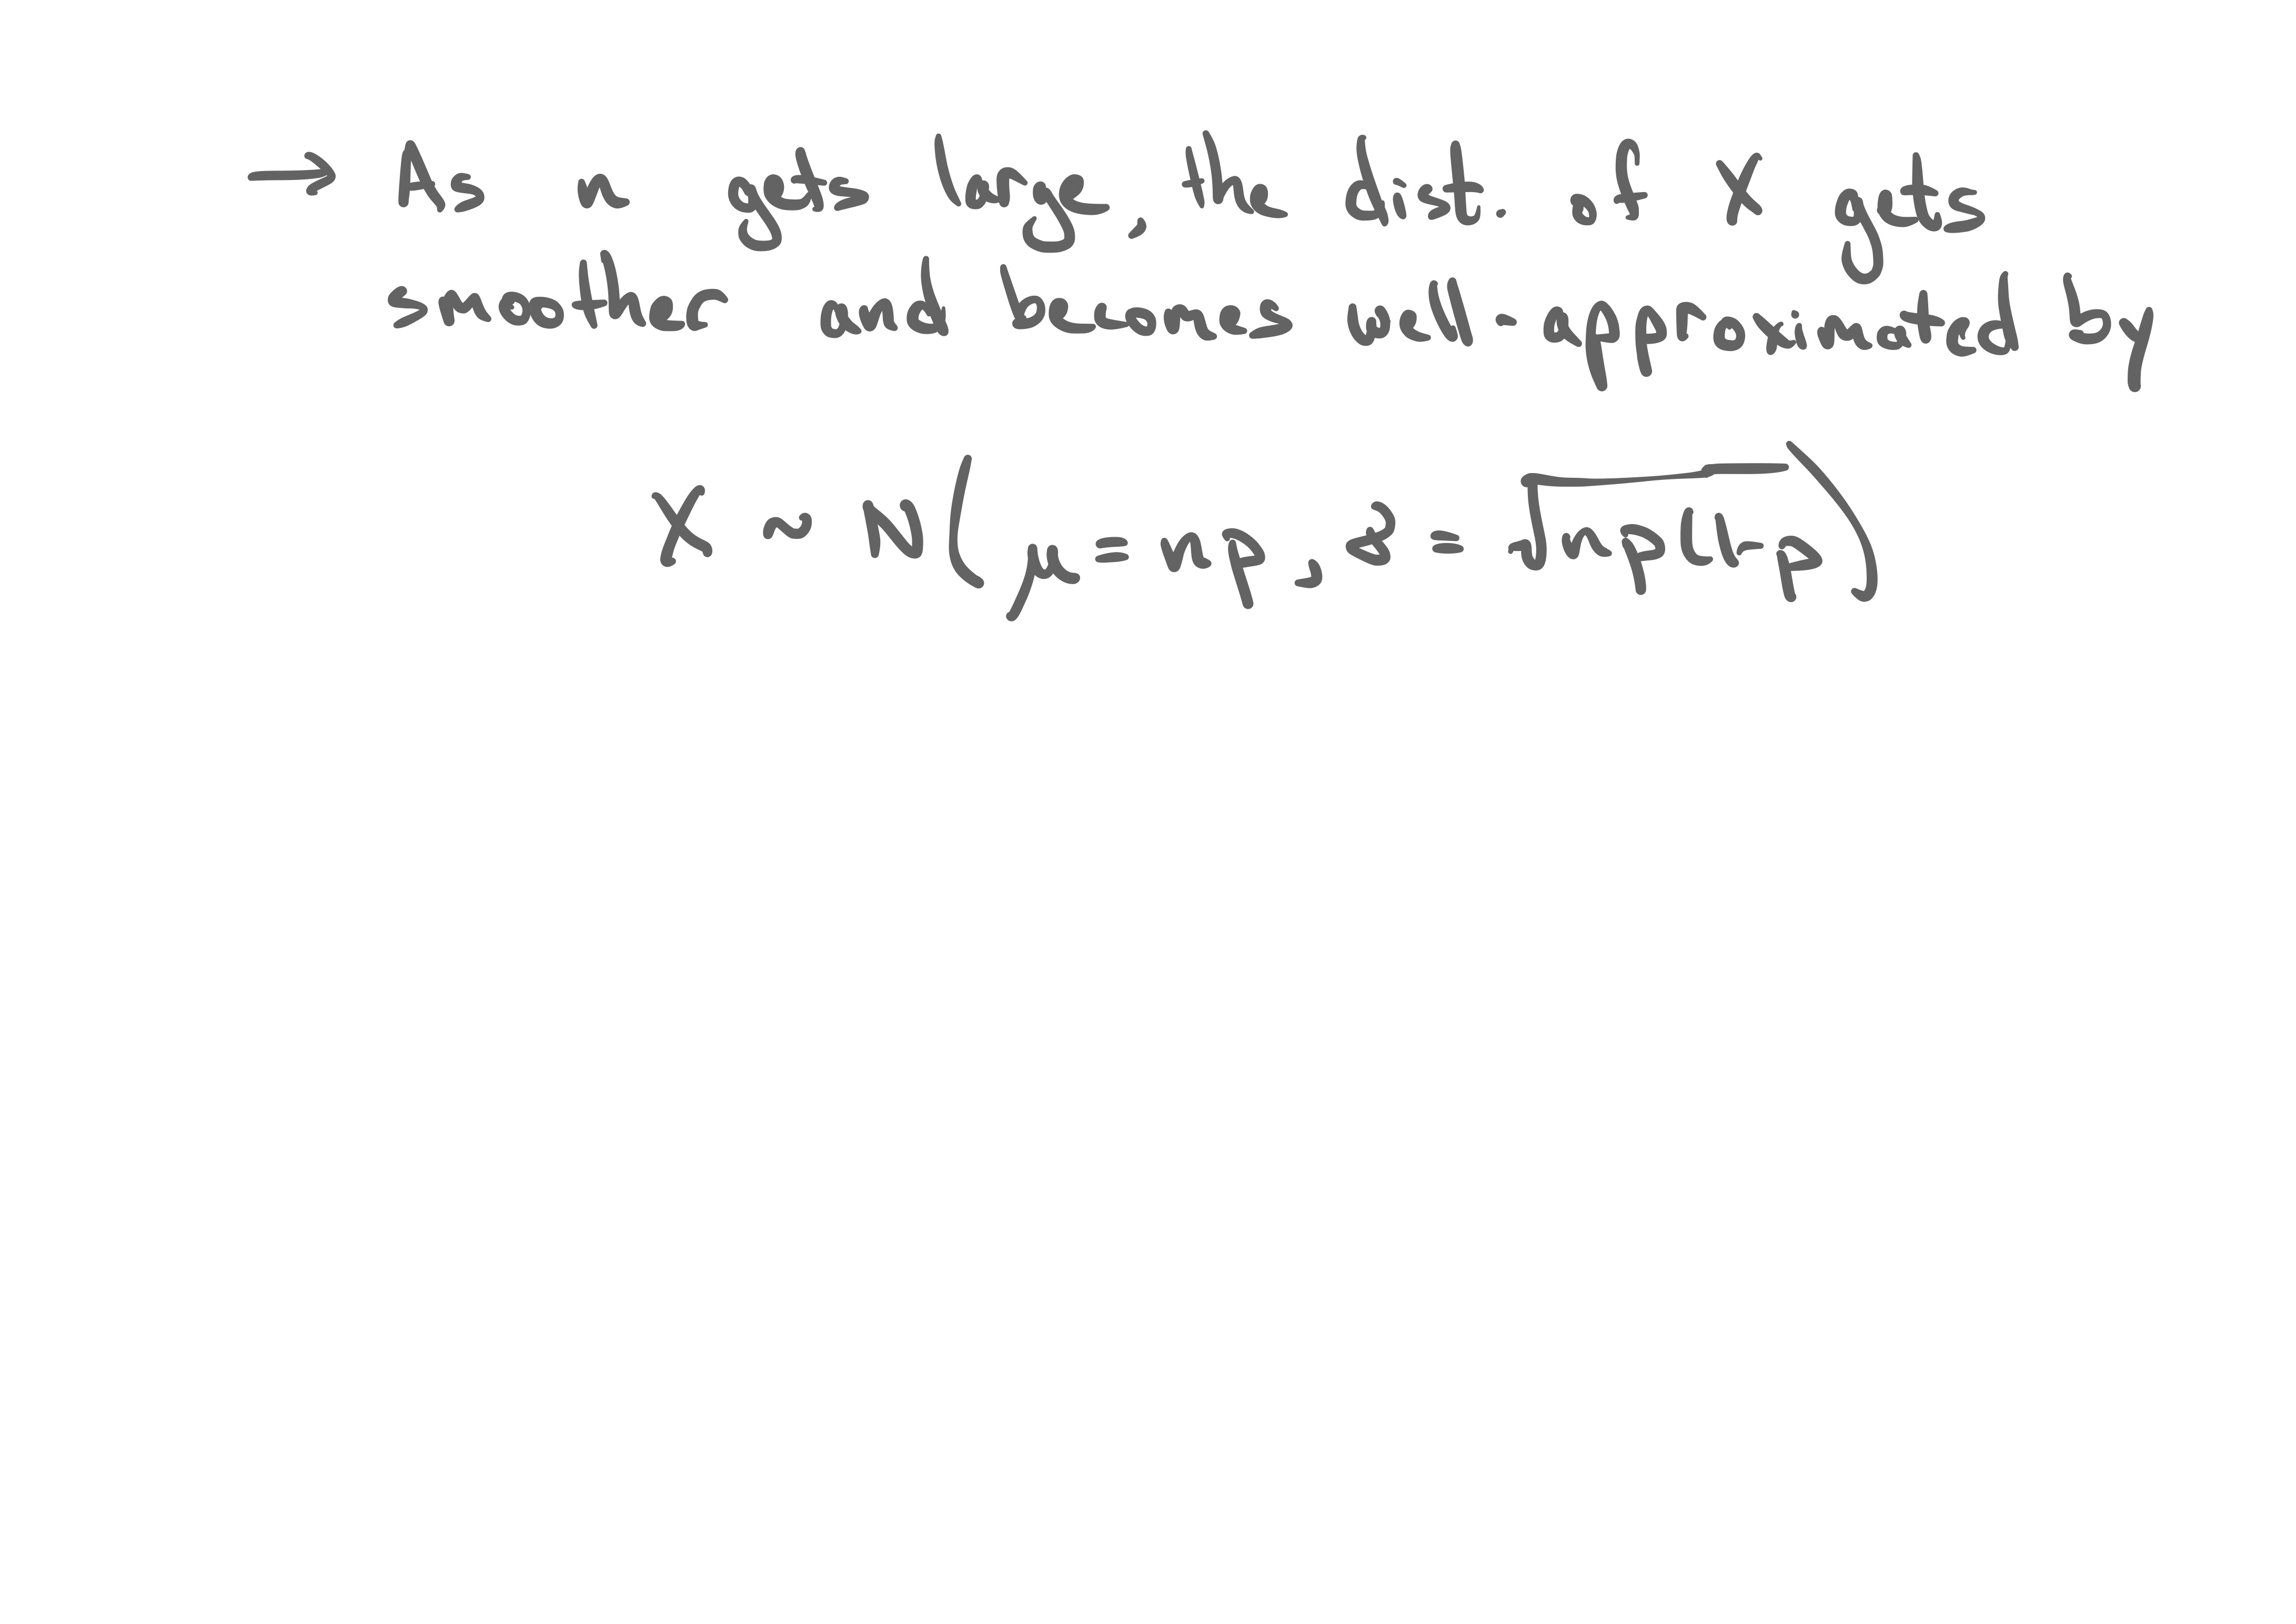 → As n gets large, the dist. of X gets
smoother and becomes well-approximated by
X ~ N(μ = np, 2 = √np(1-p))